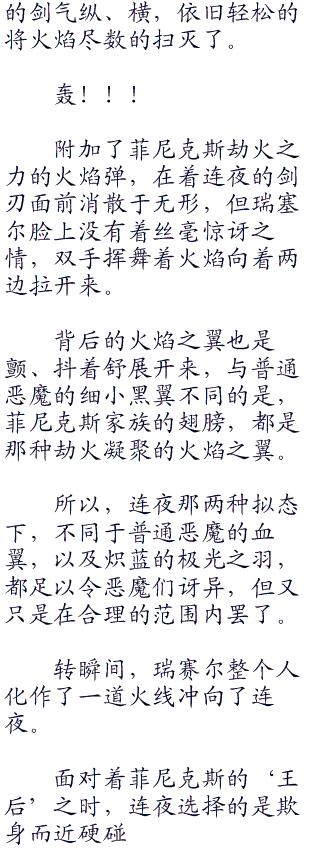 的剑气纵、横，依旧轻松的
将火焰尽数的扫灭了。
轰！！！
附加了菲尼克斯劫火之
力的火焰弹，在着连夜的剑
刃面前消散于无形，但瑞塞
尔脸上没有着丝毫惊讶之
情，双手挥舞着火焰向着两
边拉开来。
背后的火焰之翼也是
颤、抖着舒展开来，与普通
恶魔的细小黑翼不同的是，
菲尼克斯家族的翅膀，都是
那种劫火凝聚的火焰之翼。
所以，连夜那两种拟态
下，不同于普通恶魔的血
翼，以及炽蓝的极光之羽，
都足以令恶魔们讶异，但又
只是在合理的范围内罢了。
转瞬间，瑞赛尔整个人
化作了一道火线冲向了连
夜。
面对着菲尼克斯的‘王
后’之时，连夜选择的是欺
身而近硬碰